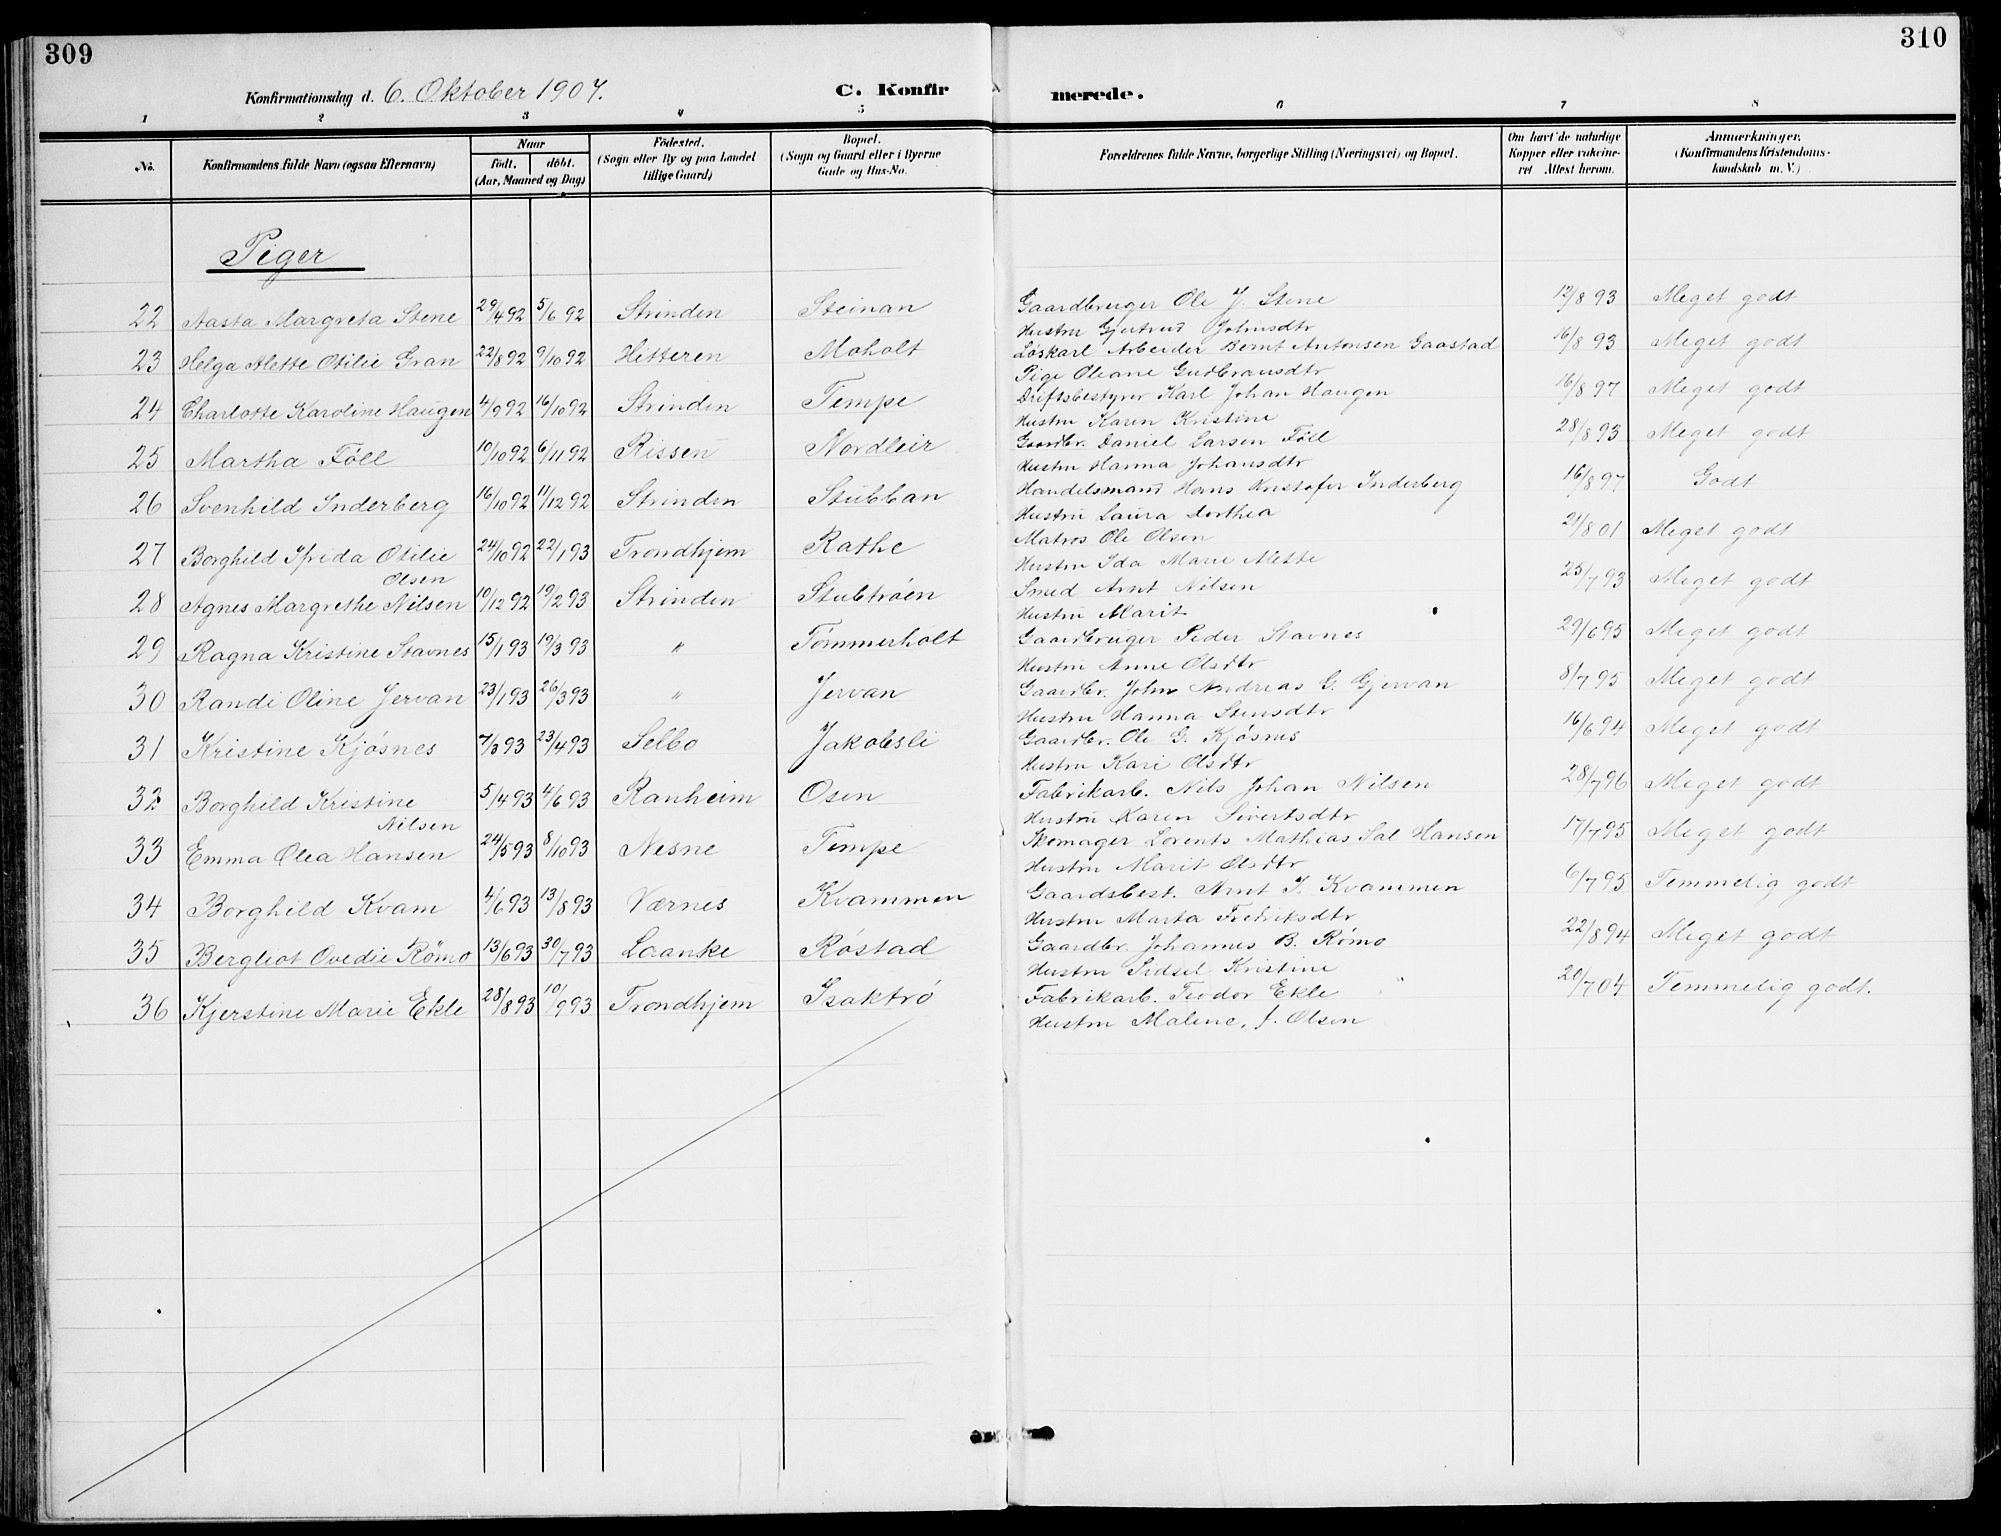 309
310
Konfirmationsdag d. 6. Oktober 1907.
C. Konfir
merede.
1 2 3 4 5 6 7 8
No.
Konfirmandens fulde Navn (ogsaa Efternavn)
Naar
födt. döbt.
(Aar, Maaned og Dag)
Födested.
(Sogn eller By og paa Landet
tillige Gaard)
Bopæl.
(Sogn og Gaard eller i Byerne
Gade og Hus-No.
Forældrenes fulde Navne, borgerlige Stilling (Næringsvei) og Bopæl.
Om havt de naturlige
Kopper eller vakcine-
ret Attest herom.
Anmærkninger.
(Konfirmandens Kristendoms-
kundskab m. V.)
Piger
22 Aasta Margreta Stene 29/4 92 5/6 92 Strinden Steinan Gaardbruger Ole J. Stene 12/8 93 Meget godt
Hustru Gjertrud Johnsdtr
23 Helga Alette Otilie Gran 22/8 92 9/10 92 Hitteren Moholt Løskarl Arbeider Bernt Antonsen Gaastad 16/8 93 Meget godt
Pige Oleane Gudbransdtr
24 Charlotte Karoline Haugen 4/9 92 16/10 92 Strinden Tempe Driftsbestyrer Karl Johan Haugen 16/8 97 Meget godt
Hustru Karen Kristine
25 Martha Føll 10/10 92 6/11 92 Rissen Nordleir Gaardbr. Daniel Larsen Føll 28/8 93 Meget godt
Hustru Hanna Johansdtr
26 Svenhild Inderberg 16/10 92 11/12 92 Strinden Stubban Handelsmand Hans Kristofer Inderberg 16/8 97 Godt
Hustru Laura Dorthea
27 Borghild Ifrida Otilie 24/10 92 22/1 93 Trondhjem Rathe Matros Ole Olsen 21/8 01 Meget godt
Olsen
Hustru Ida Marie Alette
28 Agnes Margrethe Nilsen 10/12 92 19/2 93 Strinden Stubtrøen Smed Arnt Nilsen 25/7 93 Meget godt
Hustru Marit
29 Ragna Kristine Stavnes 15/1 93 19/3 93 " Tømmerholt Gaardbruger Peder Stavnes 29/6 95 Meget godt
Hustru Anne Olsdtr
30 Randi Oline Jervan 23/1 93 26/3 93 " Jervan Gaardbr. John Andreas G. Gjervan 8/7 95 Meget godt
Hustru Hanna Stensdtr
31 Kristine Kjøsnes 7/3 93 23/4 93 Selbo Jakobsli Gaardbr. Ole G. Kjøsnes 16/6 94 Meget godt
Hustru Kari Olsdtr
32 Borghild Kristine 5/4 93 4/6 93 Ranheim Osen Fabrikarb. Nils Johan Nilsen 28/7 96 Meget godt
Nilsen
Hustru Karen Sivertsdtr
33 Emma Olea Hansen 24/5 93 8/10 93 Nesne Tempe Skomager Lorents Mathias Sal Hansen 17/7 95 Meget godt
Hustru Marit Olsdtr
34 Borghild Kvam 4/6 93 13/8 93 Værnes Kvammen Gaardsbest. Arnt J. Kvammen 6/7 95 Temmelig godt
Hustru Marta Fredriksdtr
35 Bergliot Ovedie Rømo 13/6 93 30/7 93 Laanke Røstad Gaardbr. Johannes B. Rømo 22/8 94 Meget godt
Hustru Sidsel Kristine
36 Kjerstine Marie Ekle 28/8 93 10/9 93 Trondhjem Isaktrø Fabrikarb. Teodor Ekle 20/7 04 Temmelig godt.
Hustru Malene, f. Olsen